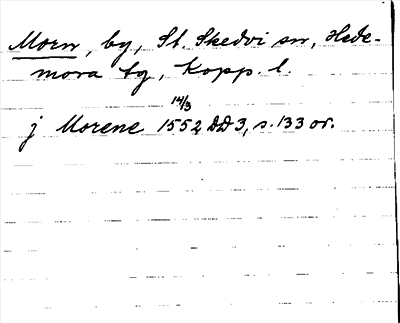 Morn, by, St. Skedvi sn, Hede-
mora tg, Kopp. l.
14/3
j Morene 1552 DD3, s. 133 or.